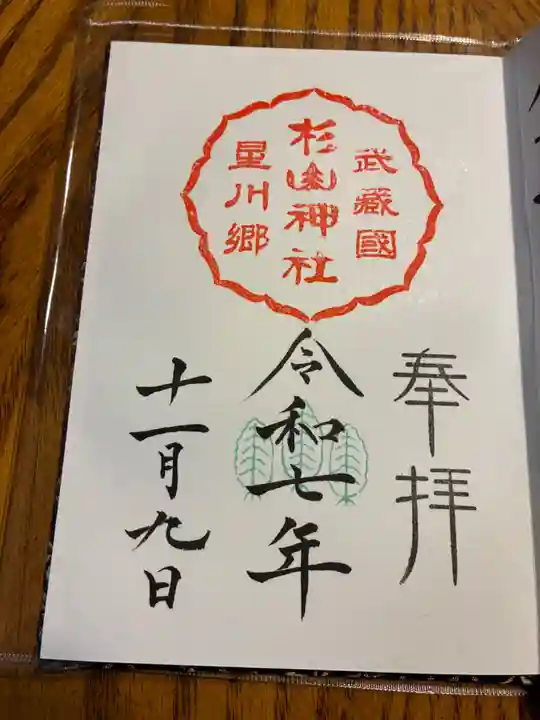 奉拝
武蔵國
杉山神社
星川郷
令和七年
十一月九日